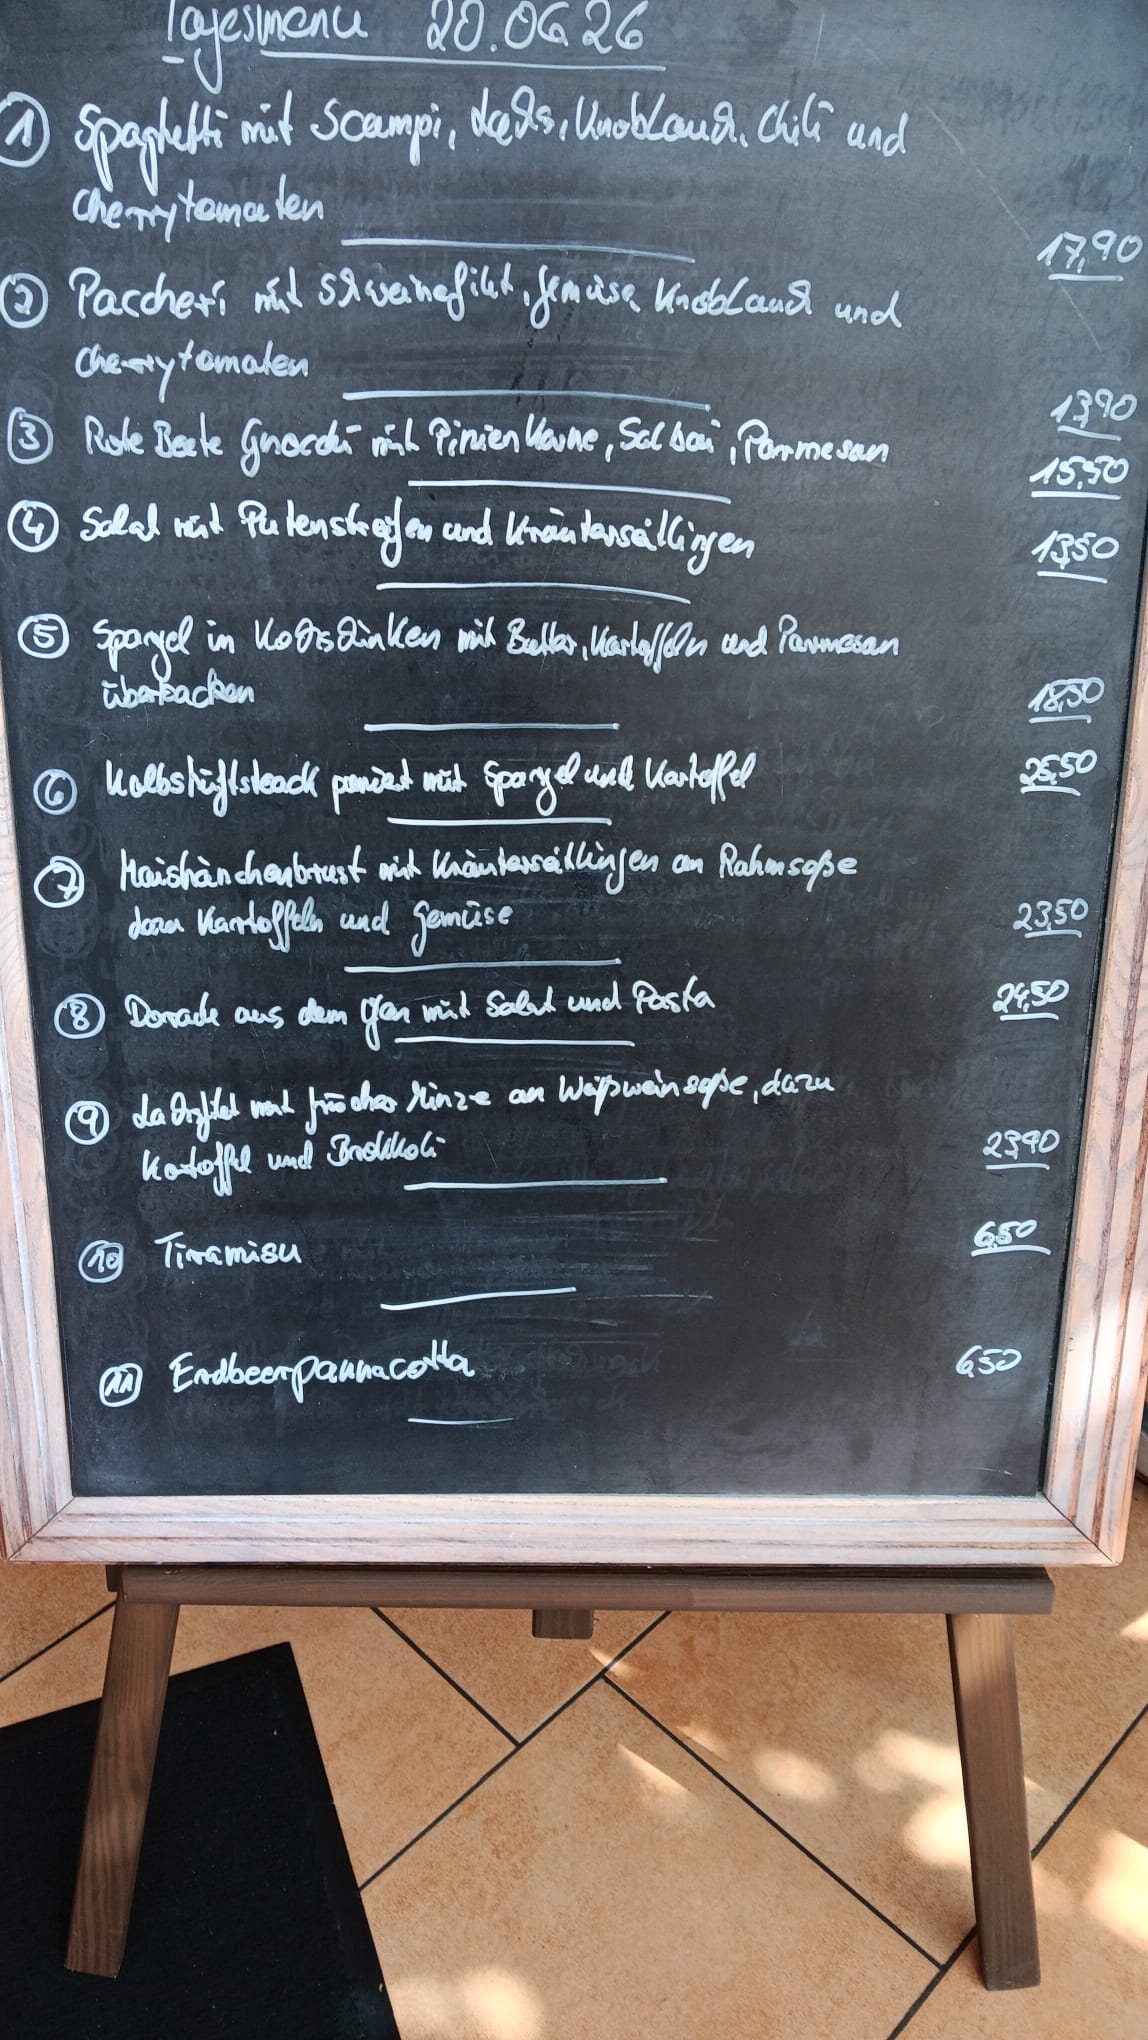 Tagesmenu 20.06.26
1 Spaghetti mit Scampi, Lachs, Knoblauch, Chili und
Cherrytomaten
17,90
2 Paccheri mit Schweinefilet, Gemüse, Knoblauch und
Cherrytomaten
13,90
3 Rote Beete Gnocchi mit Pinienkerne, Salbei, Parmesan
15,90
4 Salat mit Putenstreifen und Kräutersaitlingen
13,50
5 Spargel in Kochschinken mit Butter, Kartoffeln und Parmesan
überbacken
18,50
6 Kalbshüftsteack paniert mit Spargel und Kartoffel
25,50
7 Maishänchenbrust mit Kräutersaitlingen an Rahmsoße
dazu Kartoffeln und Gemüse
23,50
8 Dorade aus dem Ofen mit Salat und Pasta
24,50
9 Lachsfilet mit frischer Minze an Weißweinsoße, dazu
Kartoffel und Brokkoli
23,90
10 Tiramisu
6,50
11 Erdbeerpannacotta
6,50